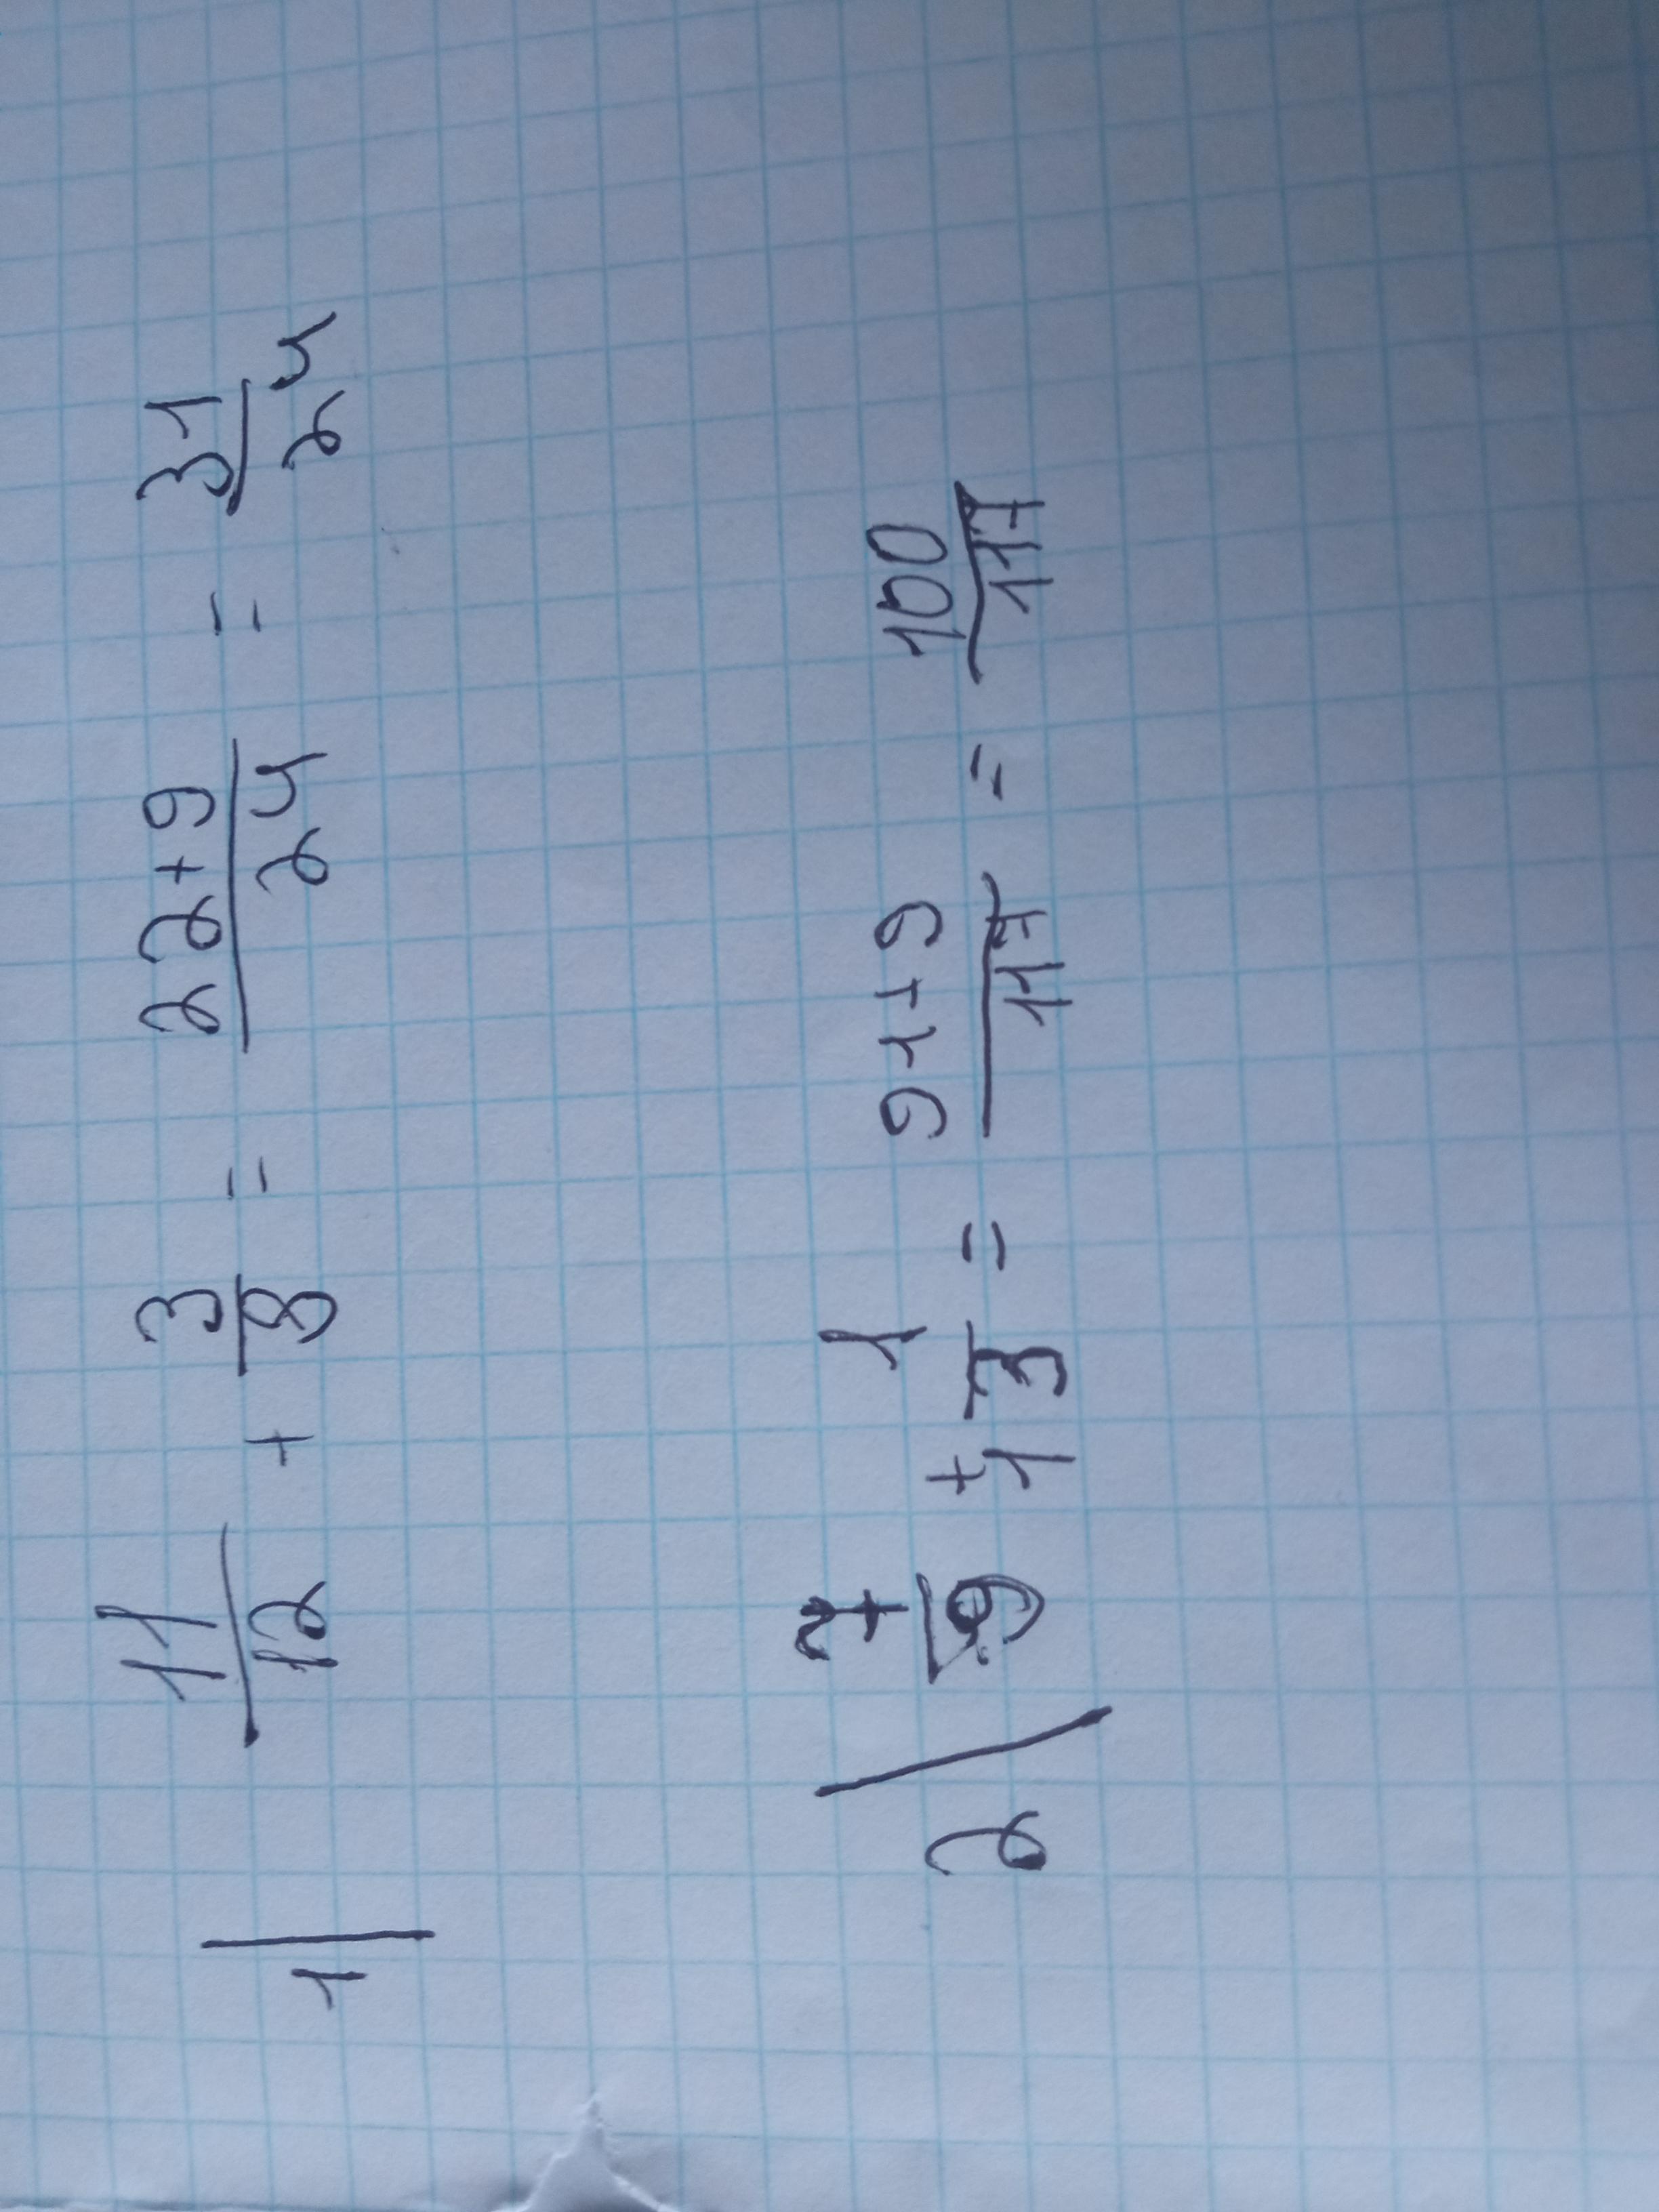 1/ 11/12 + 3/8 = 22+9/24 = 31/24
2/ 7/9 + 1/13 = 91+9/117 = 100/117